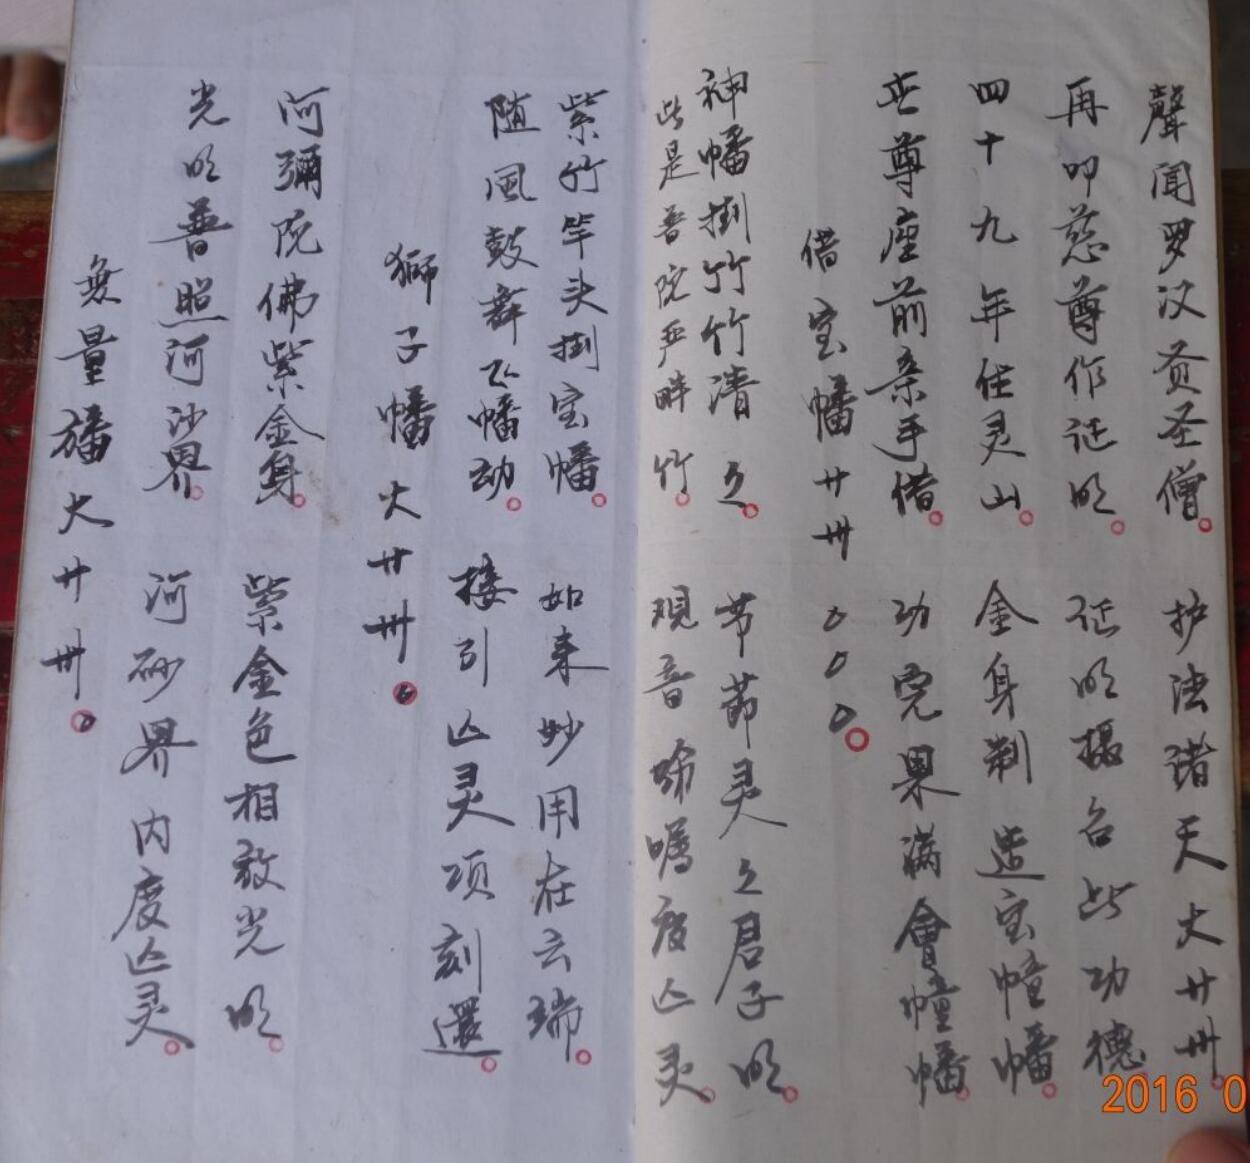 聲闻罗汉贡圣僧 护法诸天大廿卅
再叩慈尊作证明 证明攝召此功德
四十九年住灵山 金身制造宝幢幡
世尊座前亲手借 功完果满會幢幡
借宝幡廿卅
神幡掛竹竹竹清之 节節灵人之君子明
此是普陀严畔竹 观音嘱度亡灵
紫竹竿头掛宝幡 如来妙用在云瑞
随風鼓舞飞幡动 接引亡灵项刻還
獅子幡大廿卅
阿彌陀佛紫金身 紫金色相放光明
光明普照河沙界 河砂界内度亡灵
無量旛大廿卅
2016 0